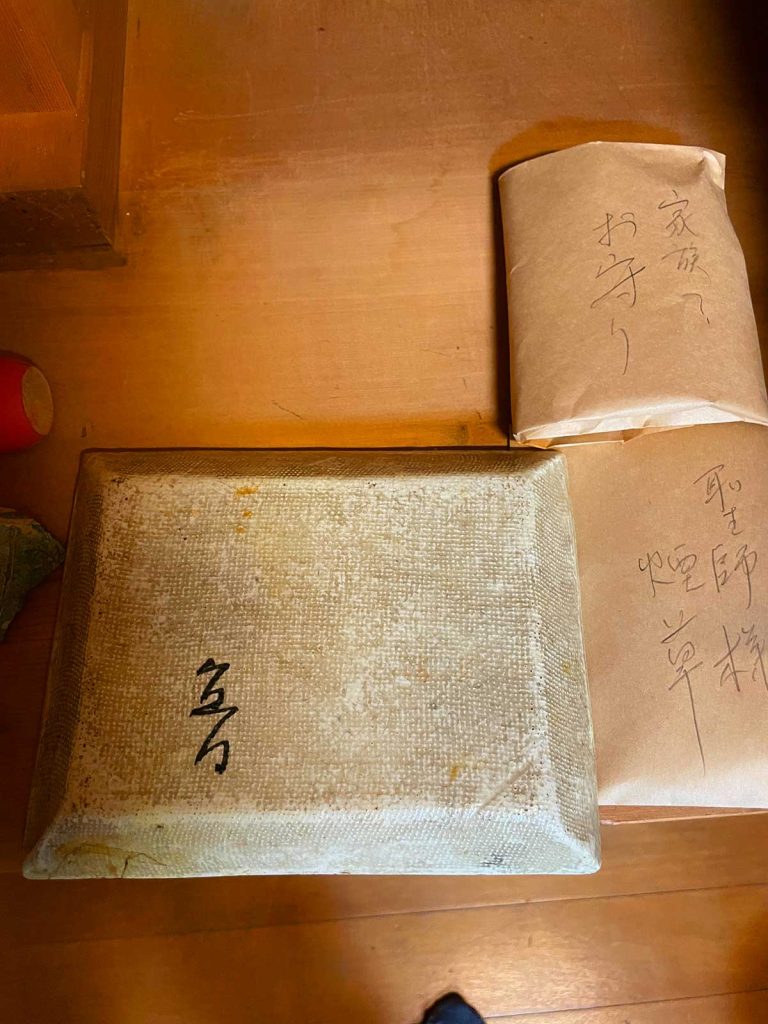 家族の
お守り
聖師様
煙草